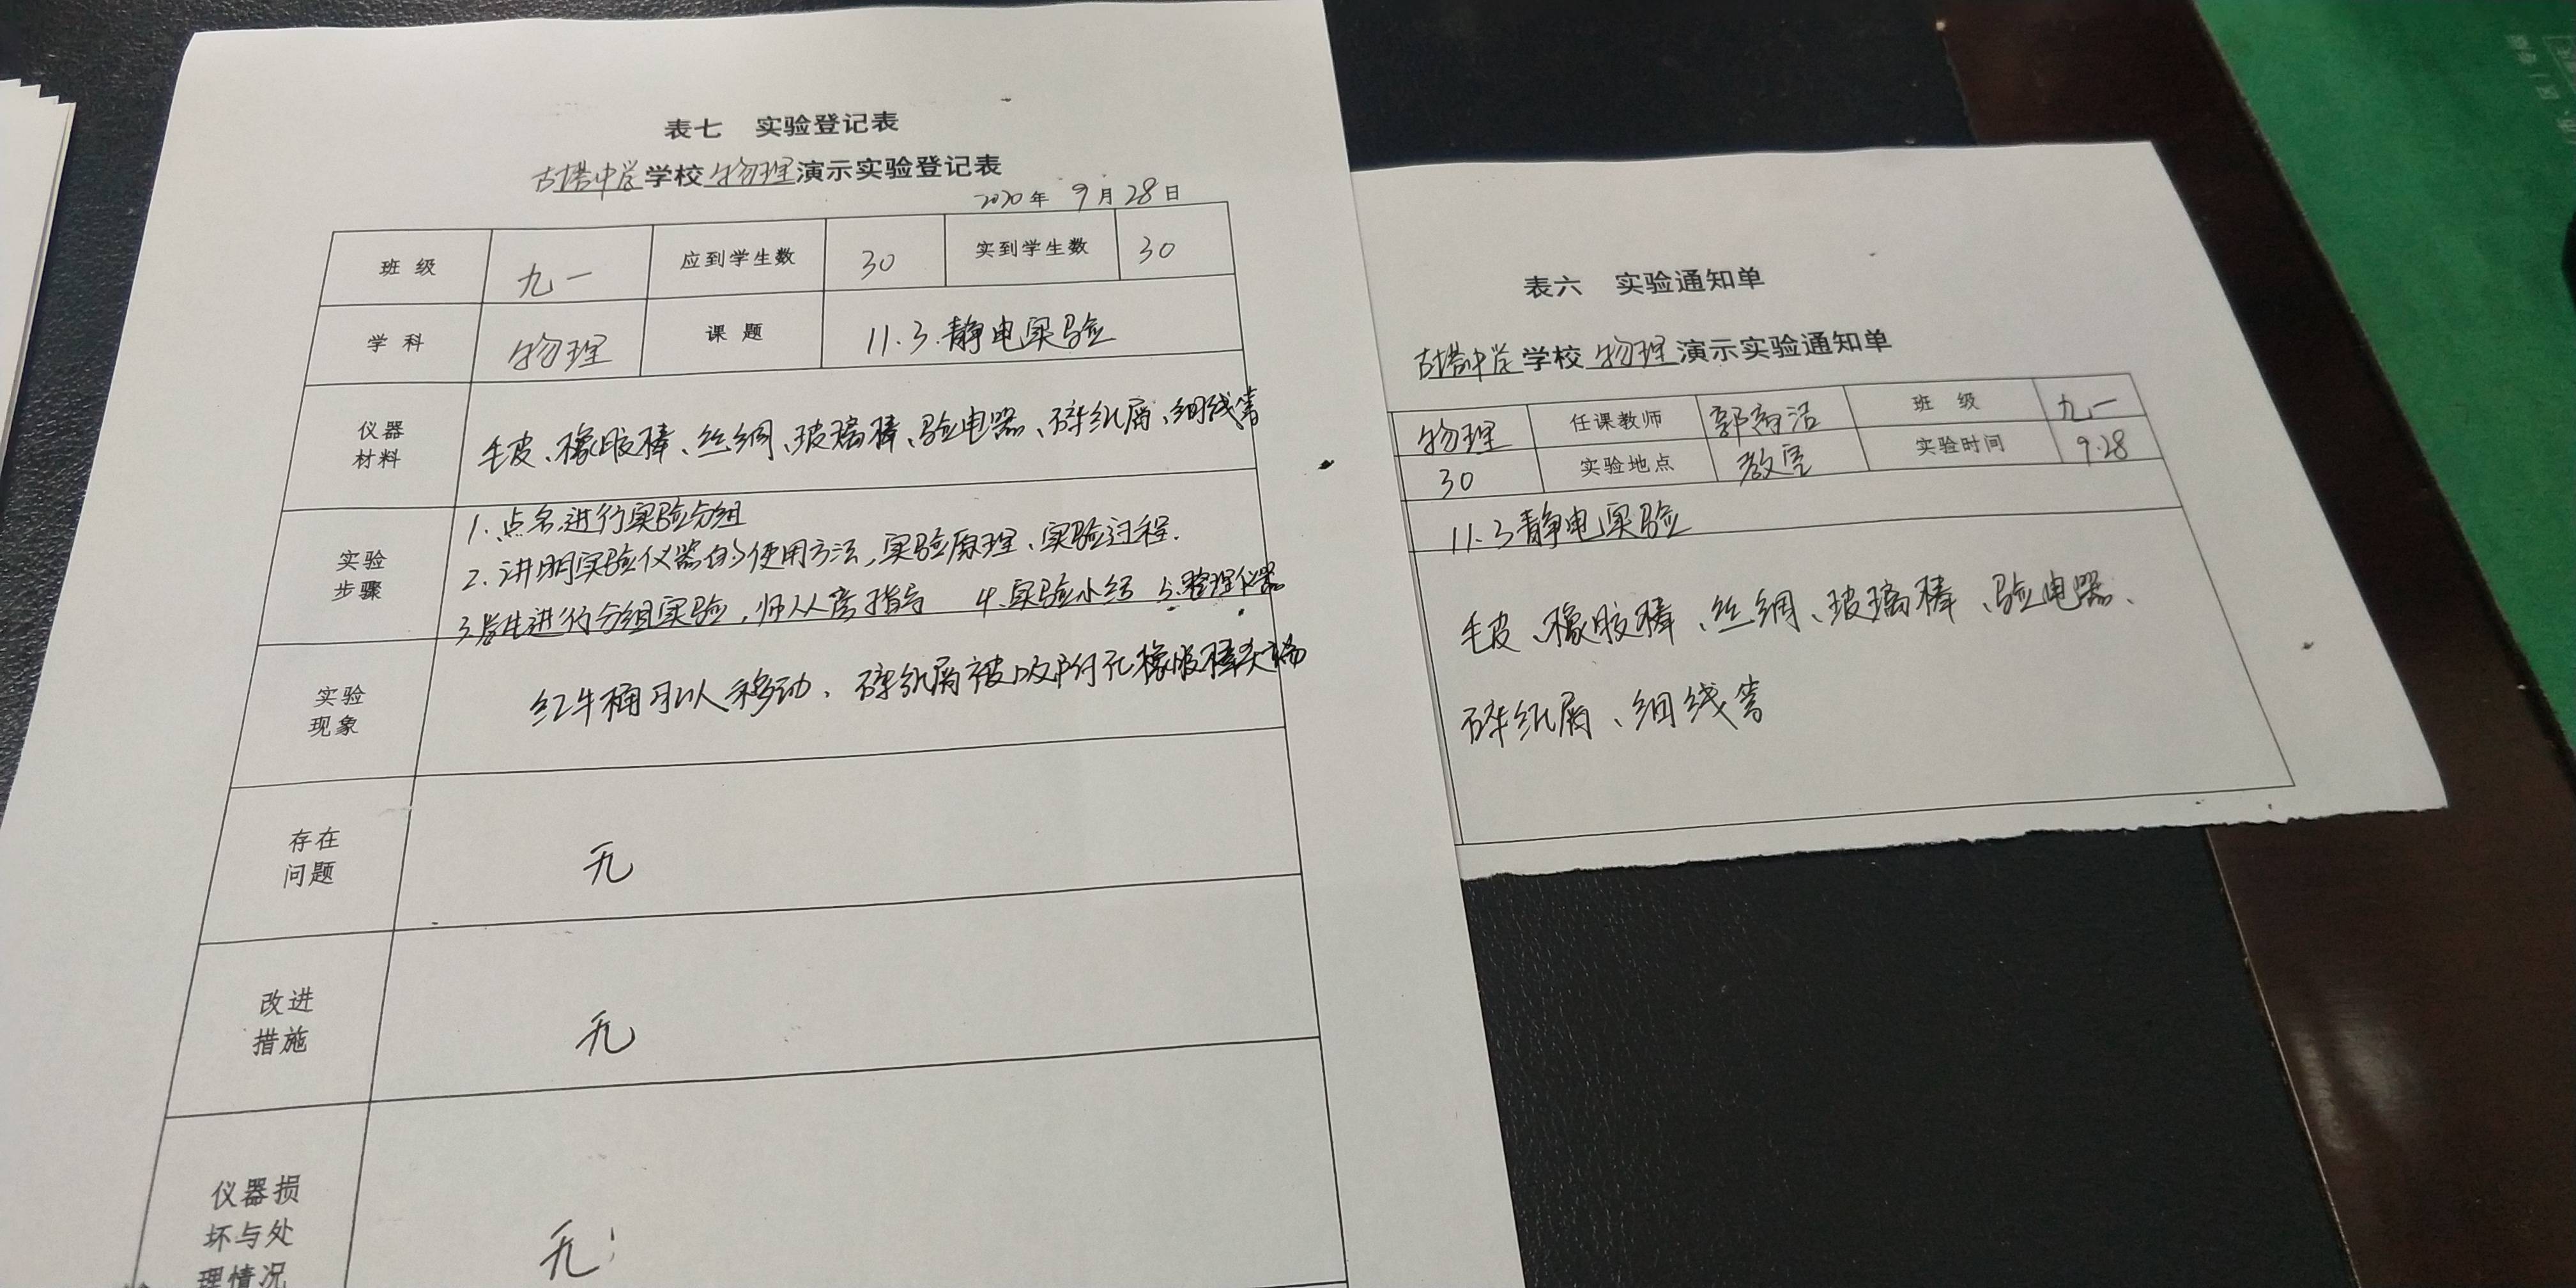 表七 实验登记表
古塔中学学校物理演示实验登记表
2020年 9月28日
班级 九一 应到学生数 30 实到学生数 30
学科 物理 课题 11.3.静电实验
仪器
材料
毛皮、橡胶棒、丝绸、玻璃棒、验电器、碎纸屑、细线等
实验
步骤
1.点名,进行实验分组
2.讲明实验仪器的使用方法,实验原理、实验过程.
3.学生进行分组实验,师从旁指导 4.实验小结 5.整理仪器
实验
现象
红牛桶可以移动,碎纸屑被吸附在橡胶棒尖端
存在
问题
无
改进
措施
无
仪器损
坏与处
理情况
无
表六 实验通知单
古塔中学学校物理演示实验通知单
物理 任课教师 郭 洁 班级 九一
30 实验地点 教室 实验时间 9.28
11.3静电实验
毛皮、橡胶棒、丝绸、玻璃棒、验电器、
碎纸屑、细线等